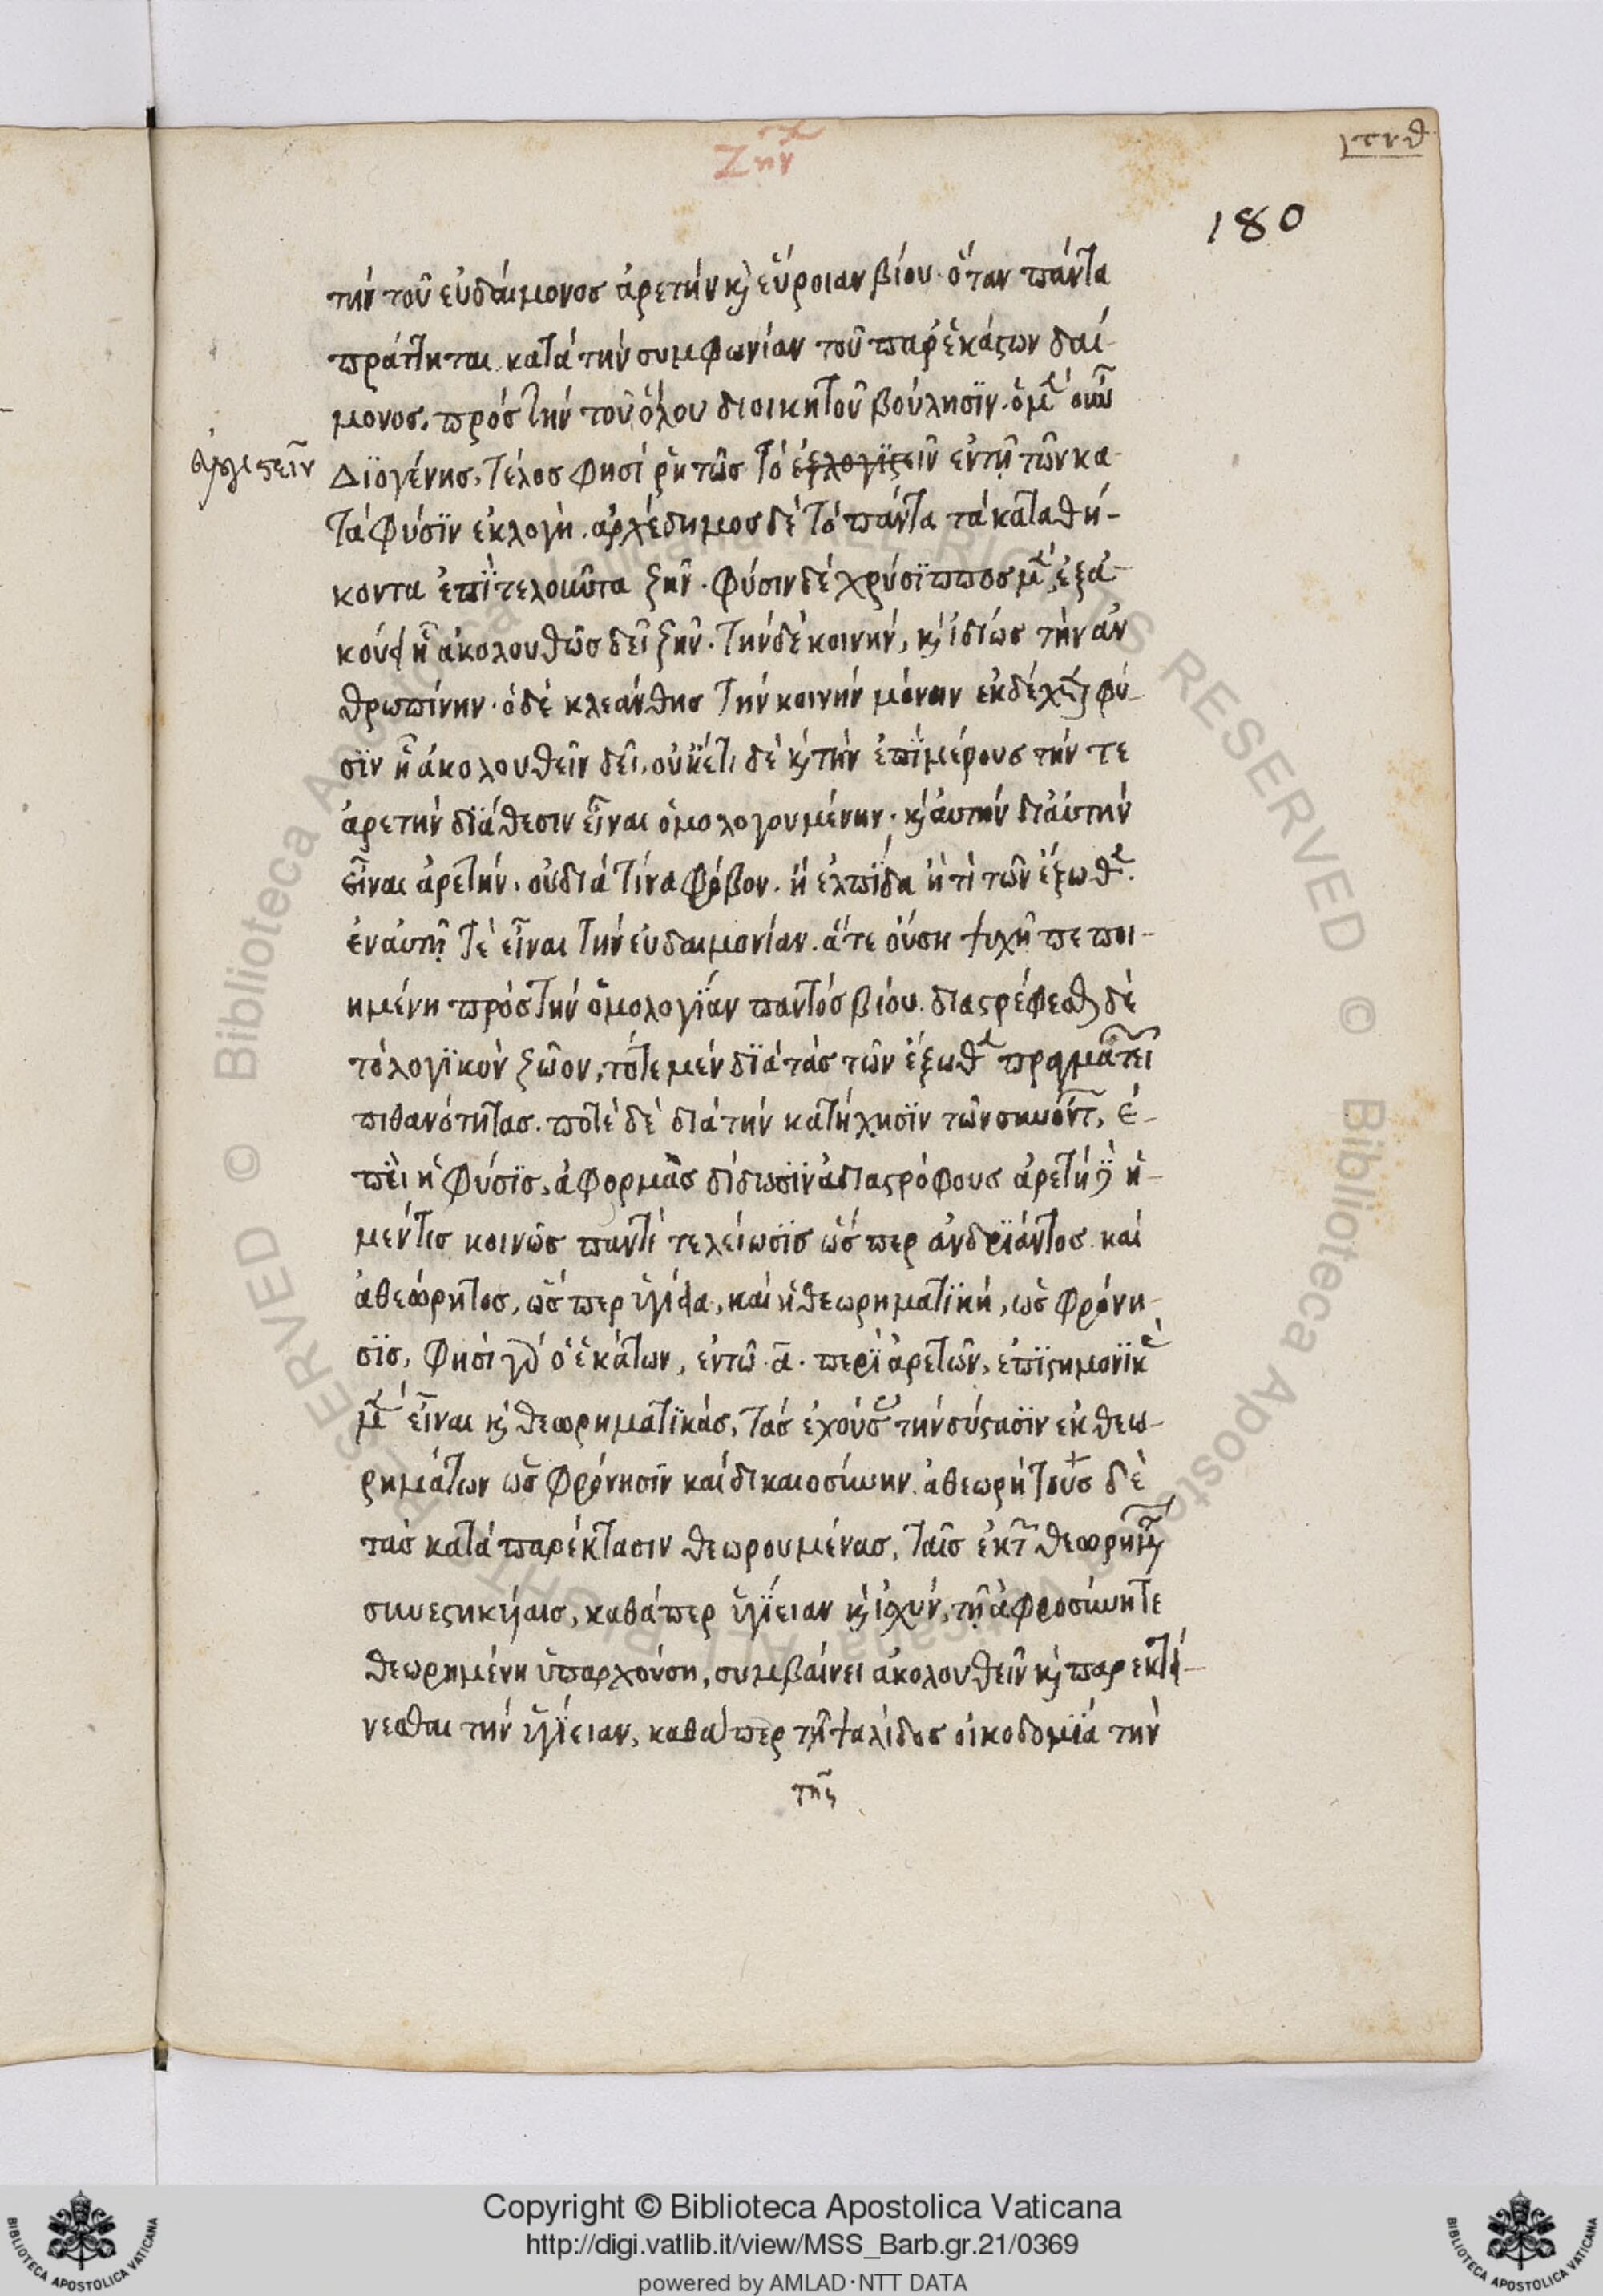 Ζην
180
τὴν τοῦ εὐδαίμονος ἀρετὴν κ εὔροιαν βίου· ὅταν πάντα
πράττηται κατὰ τὴν συμφωνίαν τοῦ παρ' ἑκάστων δαί-
μονος, πρὸς τὴν τοῦ ὅλου διοικητοῦ βούλησϊν· ὁ μ οὖν
Δϊογένης, τέλος φησὶ ῥητῶς τὸ εὐλογϊστεῖν ἐν τῇ τῶν κα-
τὰ φύσϊν ἐκλογῇ. ἀρχέδημος δὲ τὸ πάντα τὰ καταθή-
κοντα ἐπϊτελοῦντα ζῆν· φύσιν δὲ χρύσϊππος μ ἐξα-
κούει ᾗ ἀκολουθῶς δεῖ ζῆν· τήν δὲ κοινήν, κ ἰδίως τὴν ἀν
θρωπίνην· ὁ δὲ κλεάνθης τὴν κοινὴν μόνην ἐκδέχετ φύ-
σϊν ᾗ ἀκολουθεῖν δεῖ, οὐκέτι δὲ κ τὴν ἐπϊμέρους τήν τε
ἀρετὴν δϊάθεσιν εἶναι ὁμολογουμένην· κ αὐτὴν δι' αὐτὴν
εἶναι ἀρετήν, οὐ διά τινα φόβον, ἢ ἐλπΐδα ἤ τι τῶν ἔξωθ.
ἐν αὐτῇ τὲ εἶναι τὴν εὐδαιμονίαν. ἅτε οὔση ψυχῇ πεποι-
ημένη πρὸς τὴν ὁμολογΐαν παντὸς βίου. διαστρέφεσθ δὲ
τὸ λογϊκὸν ζῶον, τότε μὲν δϊὰ τὰς τῶν ἔξωθ πραγματει
πιθανότητας. ποτὲ δὲ διὰ τὴν κατήχησϊν τῶν συνόντ, ἐ-
πεὶ ἡ φύσϊς, ἀφορμὰς δίδωσϊν ἀδιαστρόφους ἀρετὴ ἡ-
μέν τις κοινῶς παντὶ τελείωσϊς ὥσπερ ἀνδρϊάντος καὶ
ἀθεώρητος, ὥσπερ ὑγίεια, καὶ ἡ θεωρηματϊκή, ὡς φρόνη-
σϊς, φησὶ γὰρ ὁ ἑκάτων, ἐν τῷ α. περϊ ἀρετῶν, ἐπϊστημονϊκ
μ εἶναι κ θεωρηματϊκάς, τὰς ἐχούσ τὴν σύστασϊν ἐκ θεω-
ρημάτων ὡς φρόνησιν καὶ δικαιοσύνην. ἀθεωρήτους δὲ
τὰς κατὰ παρέκτασιν θεωρουμένας, ταῖς ἐκ τ θεωρημ
συνεστηκυίαις, καθάπερ ὑγΐειαν κ ἰσχύν, τῇ ἀφροσύνητε
θεωρημένη ὑπαρχούση, συμβαίνει ἀκολουθεῖν κ παρεκτεί-
νεσθαι τὴν ὑγΐειαν, καθάπερ τῆ ψαλίδος οἰκοδομϊᾷ τὴν
τῆς
Copyright © Biblioteca Apostolica Vaticana
http://digi.vatlib.it/view/MSS_Barb.gr.21/0369
powered by AMLAD · NTT DATA
BIBLIOTECA APOSTOLICA VATICANA
BIBLIOTECA APOSTOLICA VATICANA